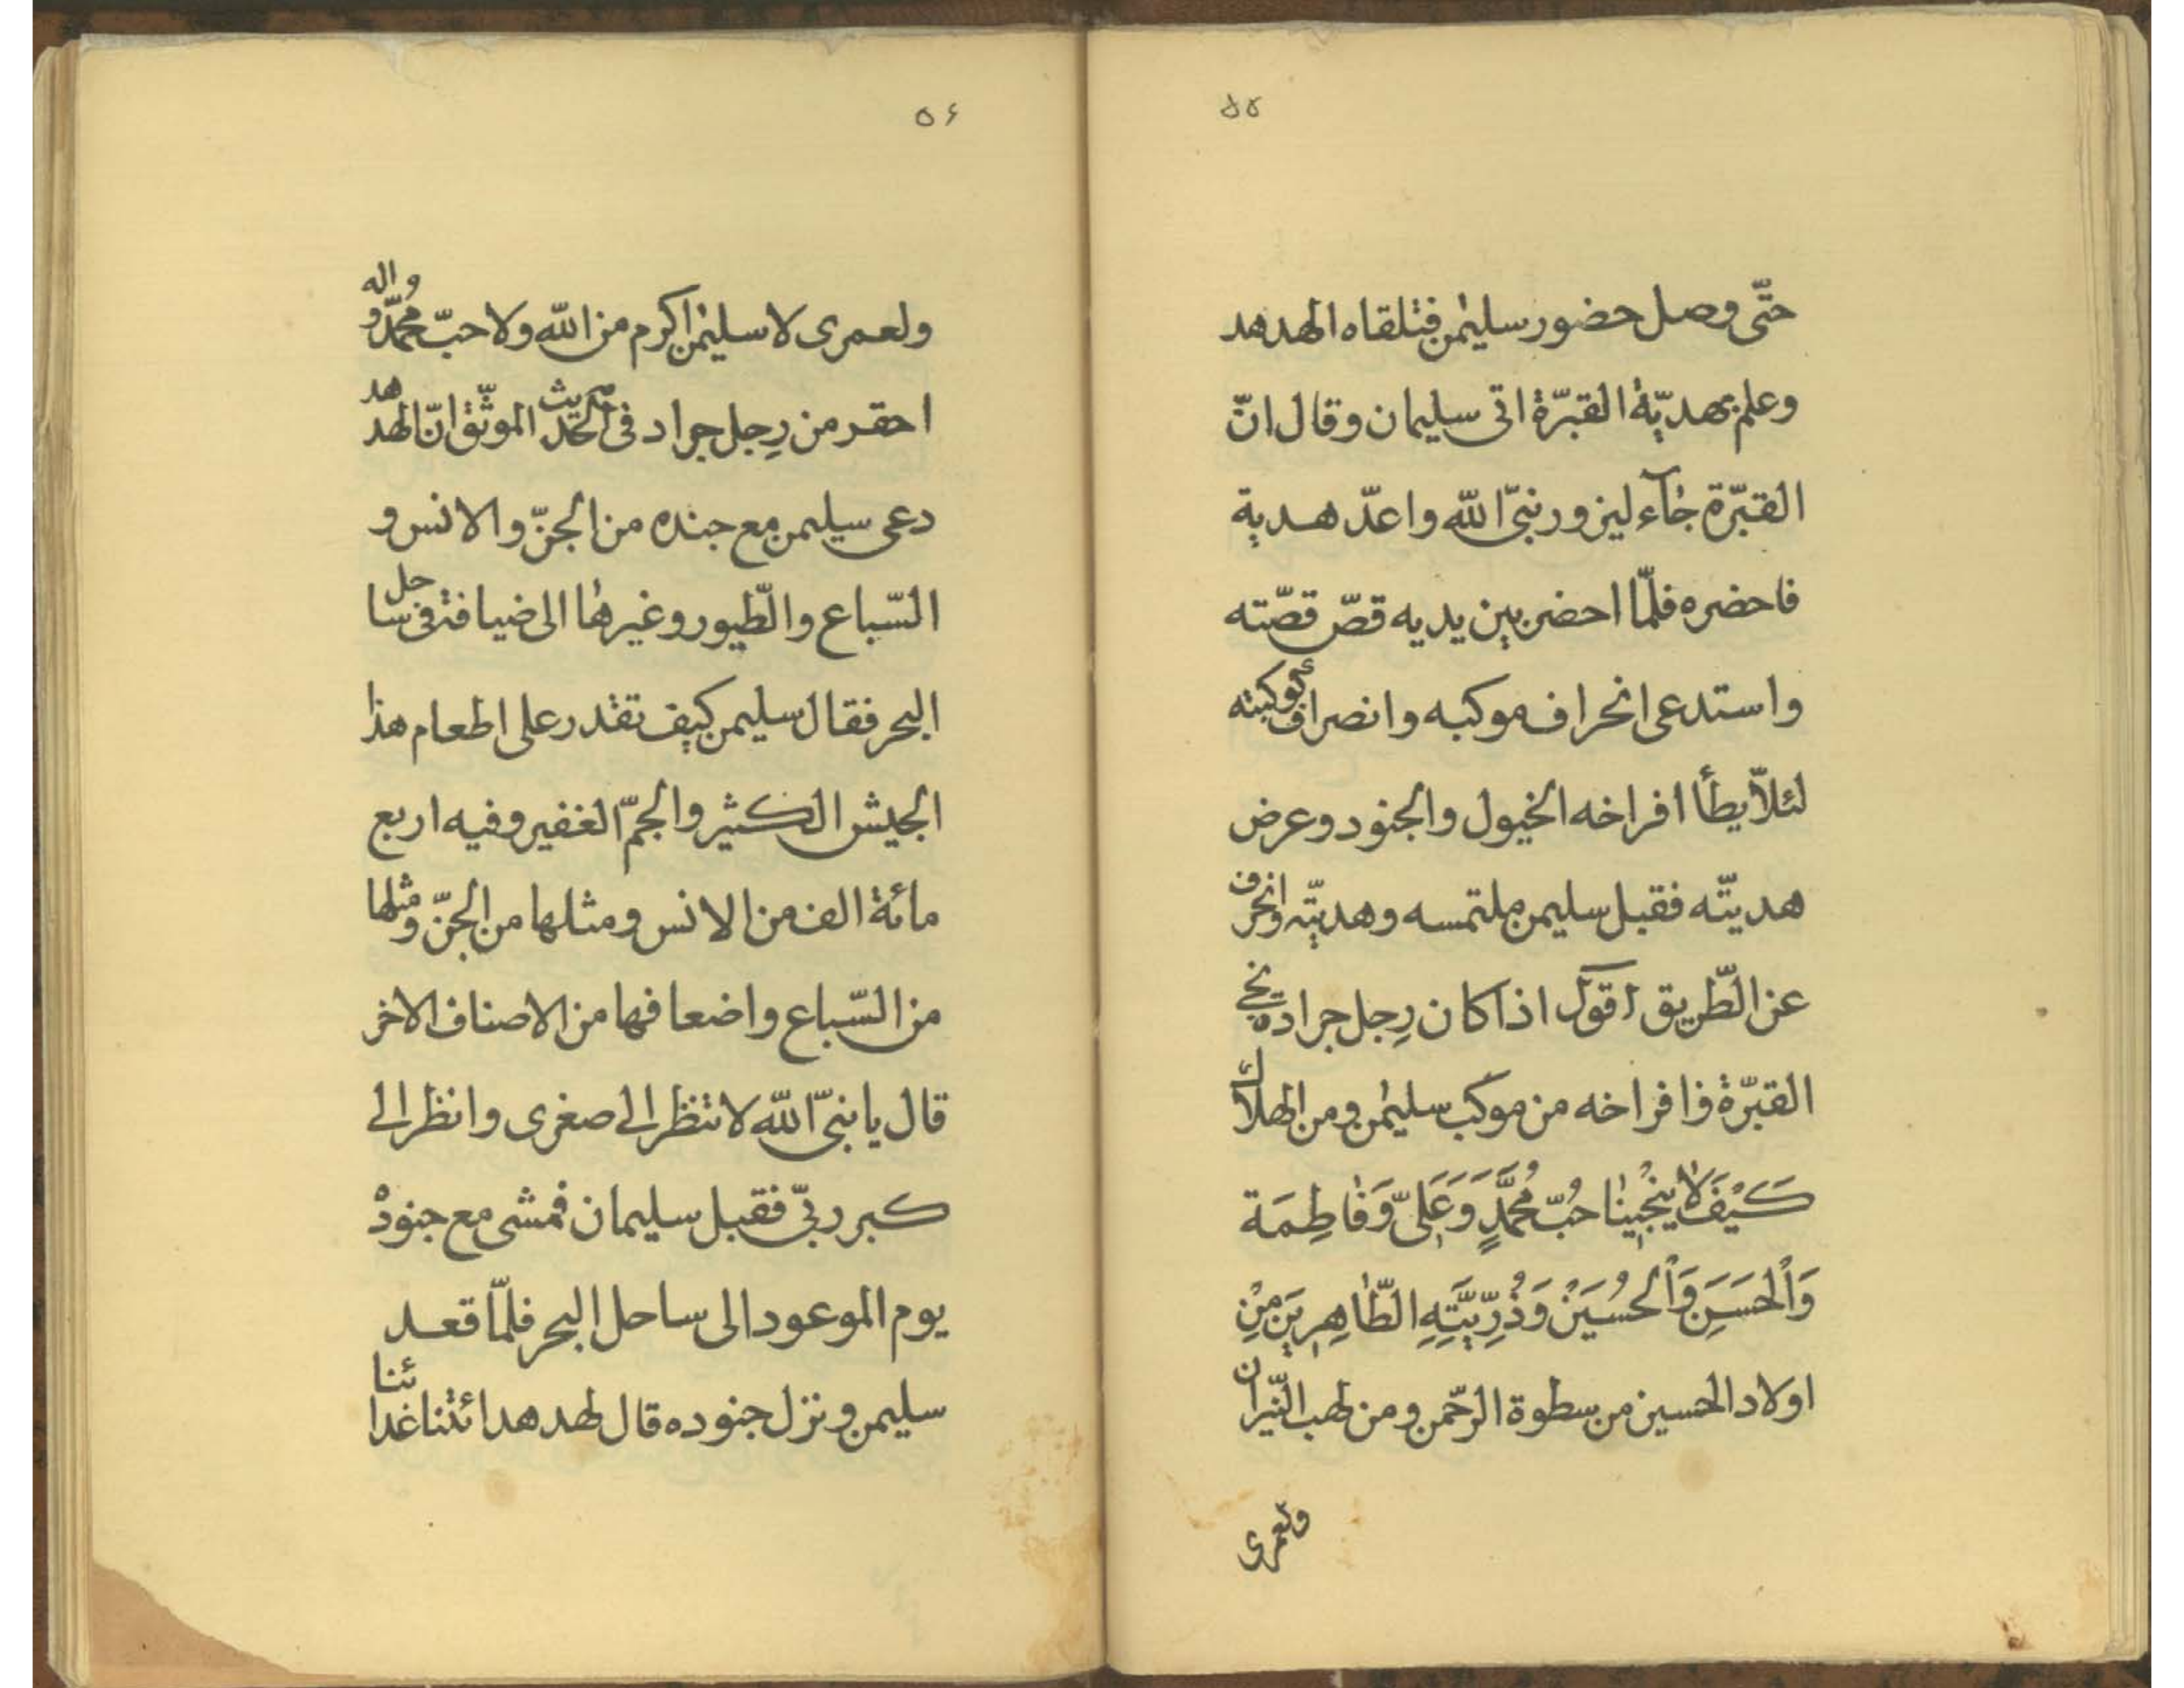 ۵۵
حتّى وصل حضور سليمن فتلقاه الهدهد
وعلم بهديّة القبرّة اتى سليمان وقال انّ
القبرّة جآء ليزور نبىّ اللّه واعدّ هدية
فاحضره فلمّا احضر بين يديه قصّ قصّته
واستدعى انحراف موكبه وانصراف كوكبته
لئلّا يطأ افراخه الخيول والجنود وعرض
هديتّه فقبل سليمن ملتمسه وهديتّه وانحرف
عن الطّريق اقول اذا كان رِجل جراده ينجى
القبرّة وافراخه من موكب سليمن ومن الهلاك
كَيْفَ لا يُنْجينا حُبّ مُحَمَّدٍ وَعَلِىّ وَفاطِمَة
وَاْلحَسَنِ وَاْلحُسَيَنْ وَذُرِّيَّتِهِ الطّاهِرينَ مِنْ
اولاد الحسين من سطوة الرّحمن ومن لهب النّيران
ولعمرى
۵۶
ولعمرى لا سليمن اكرم من اللّه ولا حبّ محُمّد و واله
احقر من رِجل جراد فى الحديث الموثّق انّ الهدهد
دعى سليمن مع جنده من الجنّ والانس و
السّباع والطّيور وغيرها الى ضيافته فى ساحل
البحر فقال سليمن كيف تقدر على اطعام هذا
الجيش الكثير والجمّ الغفير وفيه اربع
مائة الف من الانس ومثلها من الجنّ ومثلها
من السّباع واضعافها من الاصناف الاخر
قال يا نبىّ اللّه لا تنظر الى صغرى وانظر الى
كبر ربّى فقبل سليمان فمشى مع جنوده
يوم الموعود الى ساحل البحر فلمّا قعد
سليمن ونزل جنوده قال لهدهد ائتنا غدائنا